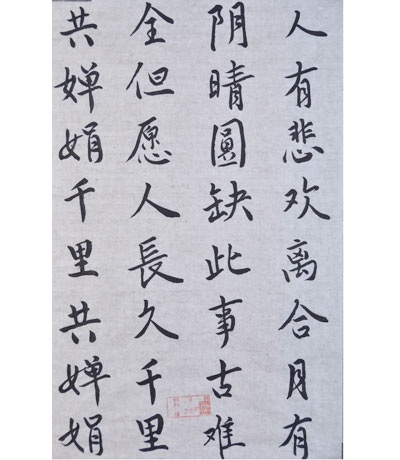 人有悲欢离合月有
阴晴圓缺此事古难
全但愿人長久千里
共婵娟千里共婵娟